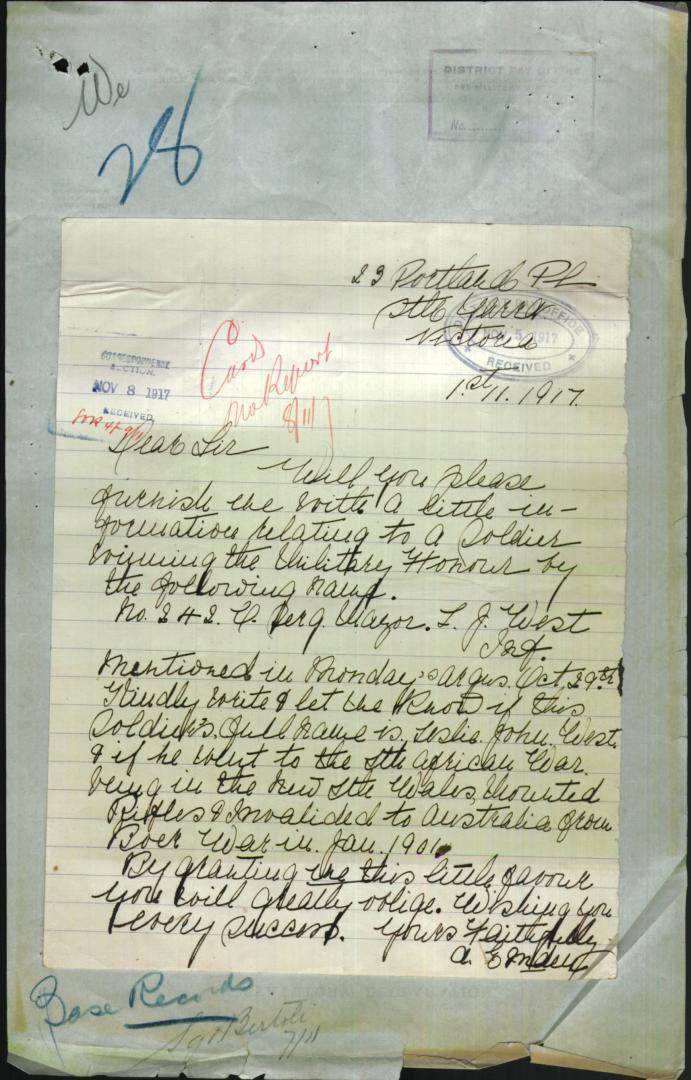 We
28
DISTRICT PAY OFFICE
No.
23 Portland Pl
Sth Yarra
Victoria
OFFICE
NOV 5 1917
RECEIVED
1st 11. 1917
CORRESPONDENCE
SECTION.
NOV 8 1917
RECEIVED
Card
no Report
8/11/17
Dear Sir
Will you please
furnish me with a little in-
formation relating to a Soldier
winning the Military Honour by
the following name.
No. 242. Q. Serg. Major. L. J. West
Inf.
Mentioned in Monday's Argus. Oct. 29th
Kindly write & let me know if this
Soldier's full name is, Leslie John West.
& if he went to the Sth African War.
being in the New Sth Wales, Mounted
Rifles & Invalided to Australia from
Boer War in. Jan. 1901.
By granting me this little favour
you will greatly oblige. Wishing you
every success. Yours Faithfully
A.
Base Records
Sgt Bertoli
7/11